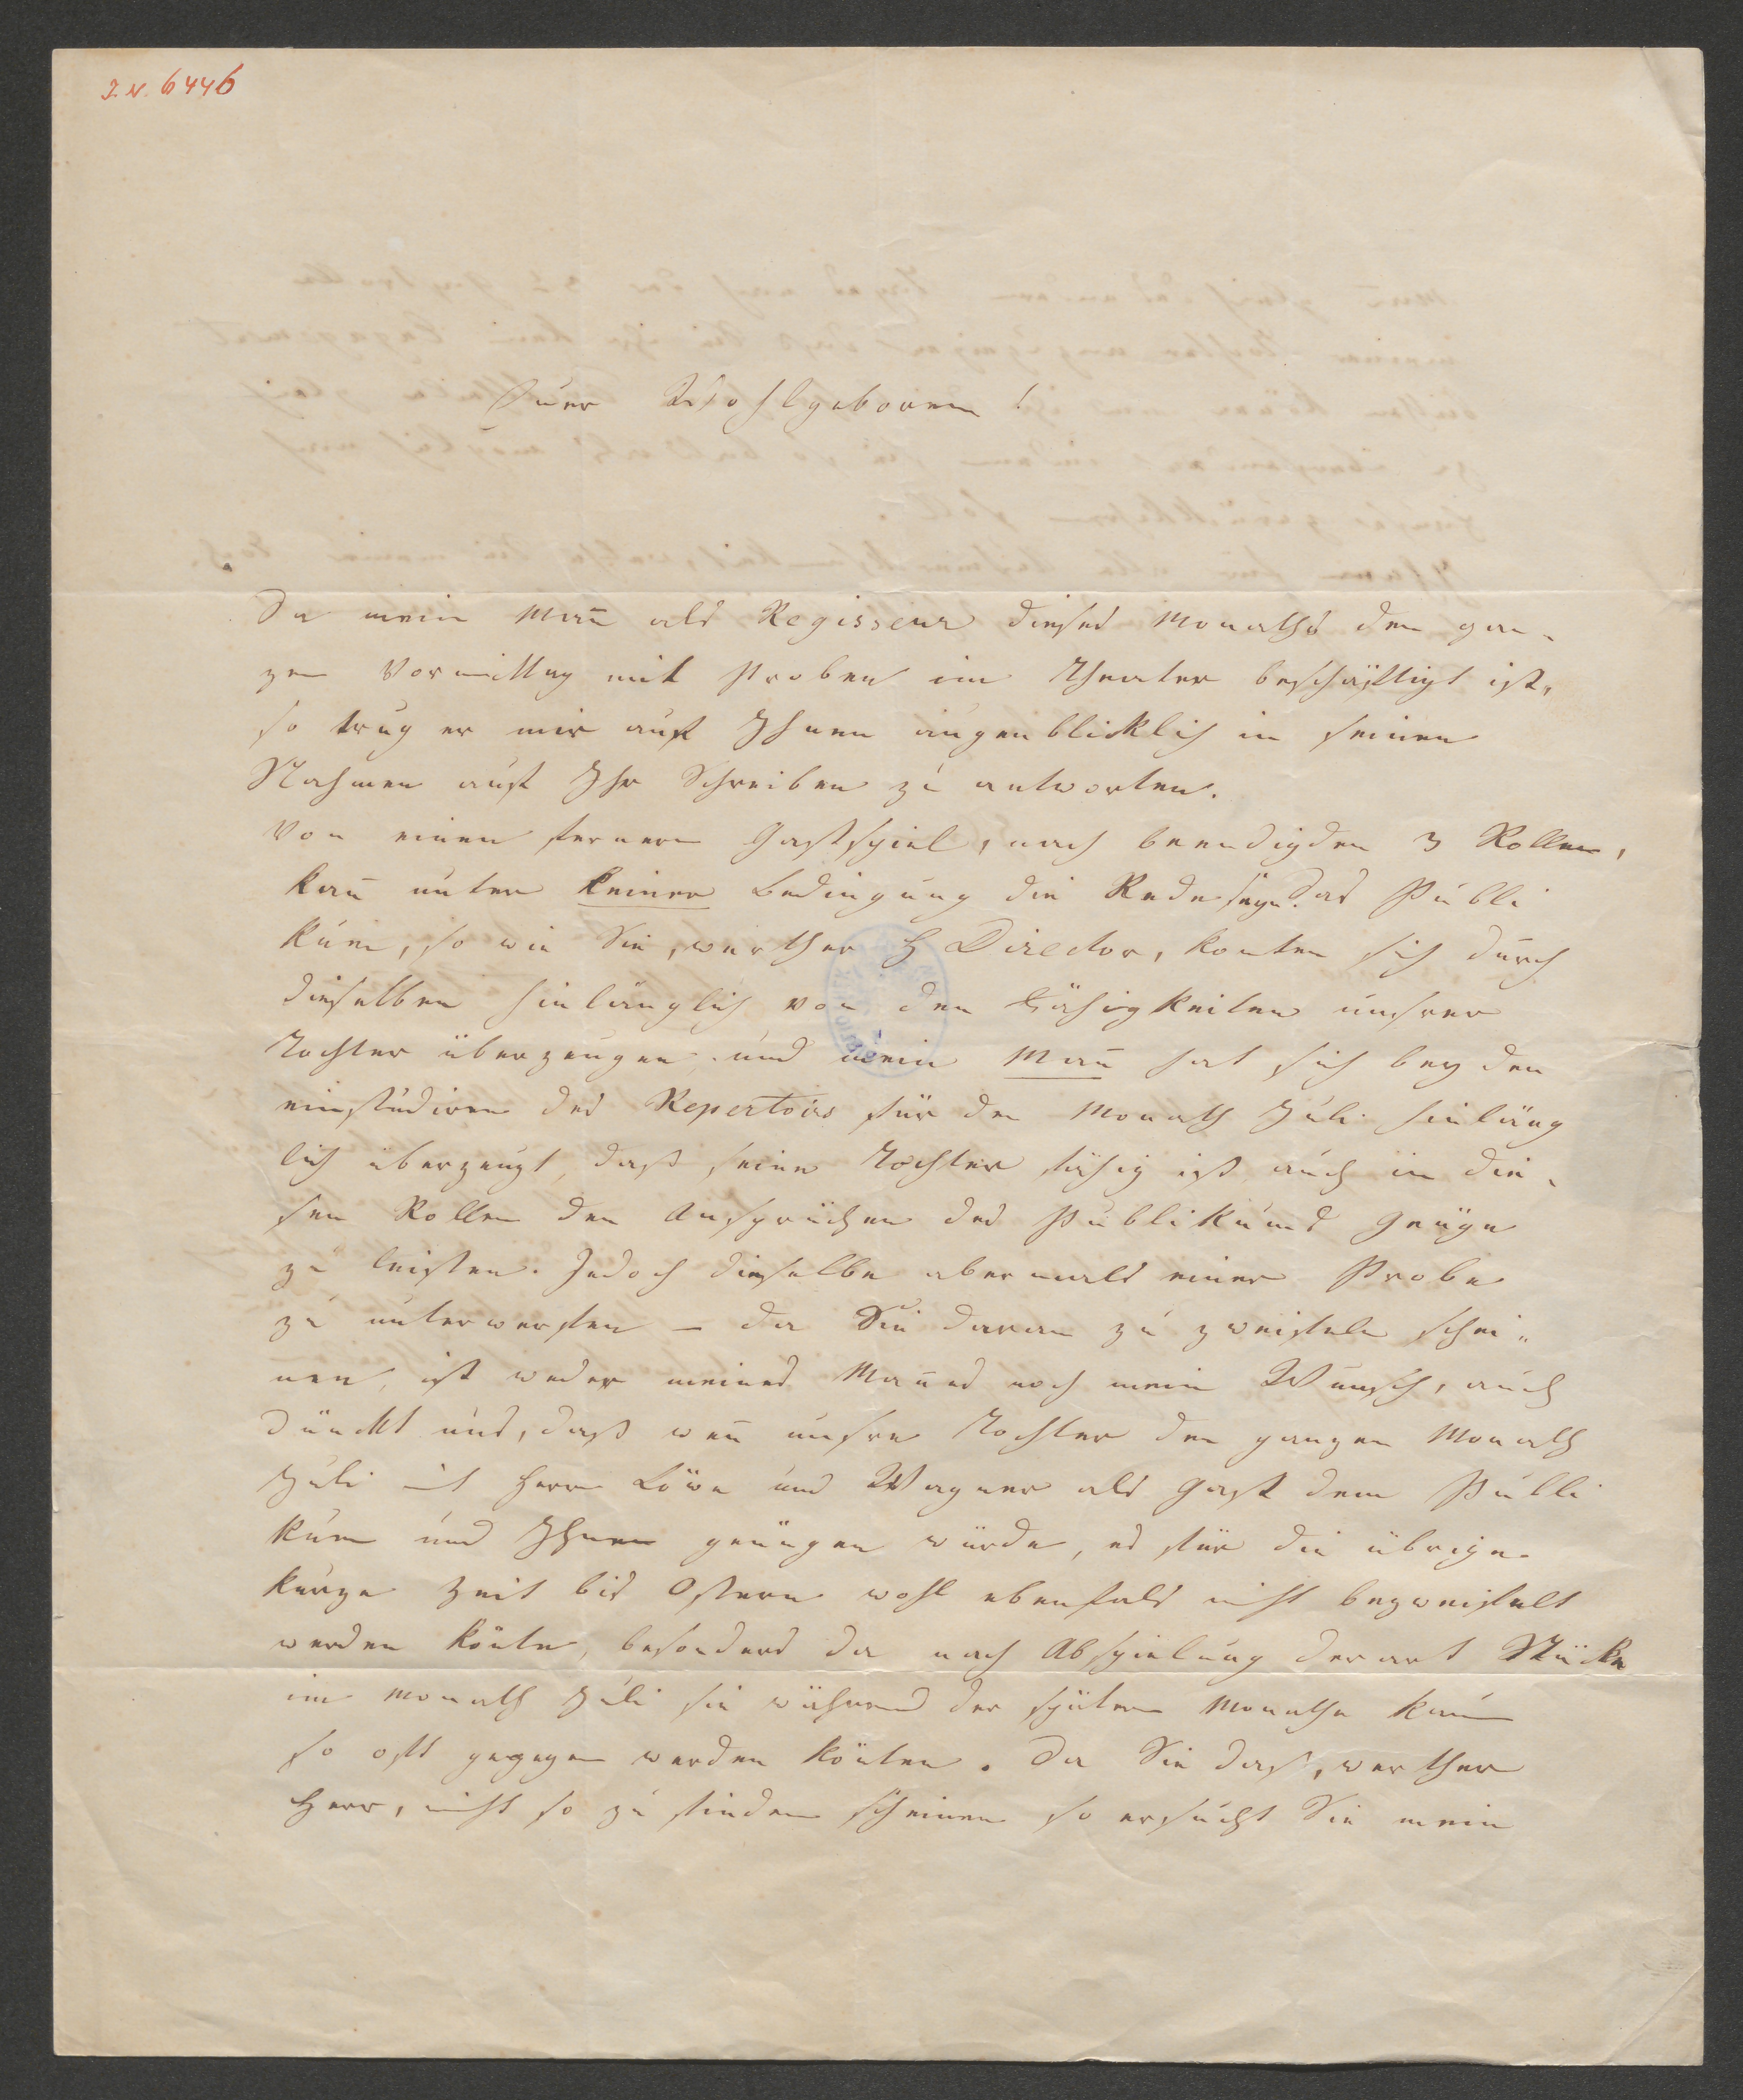 I. N. 6446
Euer Wohlgeboren!
Da mein Man̅ als Regisseur dieses Monaths den gan-
zen Vormittag mit Proben im Theater beschäftigt ist,
so trug er mir auf Ihnen augenblicklich in seinen
Nahmen auf Ihr Schreiben zu antworten.
Von einen fernern Gastspiel, nach beendigden 3 Rollen,
kan̅ unter keiner Bedingung die Rede seyn. das Publi
kum, so wie Sie, werther H Director, konten sich durch
dieselben hinlänglich von den Fähigkeiten unsrer
Tochter überzeugen und mein Man̅ hat sich bey den
einstudiren des Repertoirs für den Monath Juli hinläng
lich überzeugt, daß seine Tochter fähig ist auch in die-
sen Rollen den Ansprüchen des Publikums Genüge
zu leisten. Jedoch dieselbe abermals einer Probe
zu unterwerfen – da Sie daran zu zweifeln schei-
nen, ist weder meines Man̅es noch mein Wunsch, auch
dünckt uns, daß wen̅ unsre Tochter den ganzen Monath
Juli mit Herrn Löwe und Wagner als Gast dem Publi
kum und Ihnen genügen würde, es für die übrige
kurze Zeit bis Ostern wohl ebenfals nicht bezweifelt
werden kön̅te, besonders da nach Abspielung derart Stücke
im Monath Juli sie während der spätern Monathe kaum
so oft gegegen werden kön̅ten. Da Sie daß, werther
Herr, nicht so zu finden scheinen so ersucht Sie mein